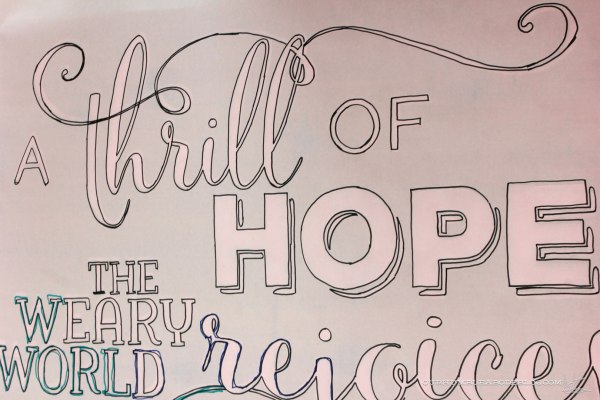 A thrill OF
HOPE
THE
WEARY
WORLD rejoices